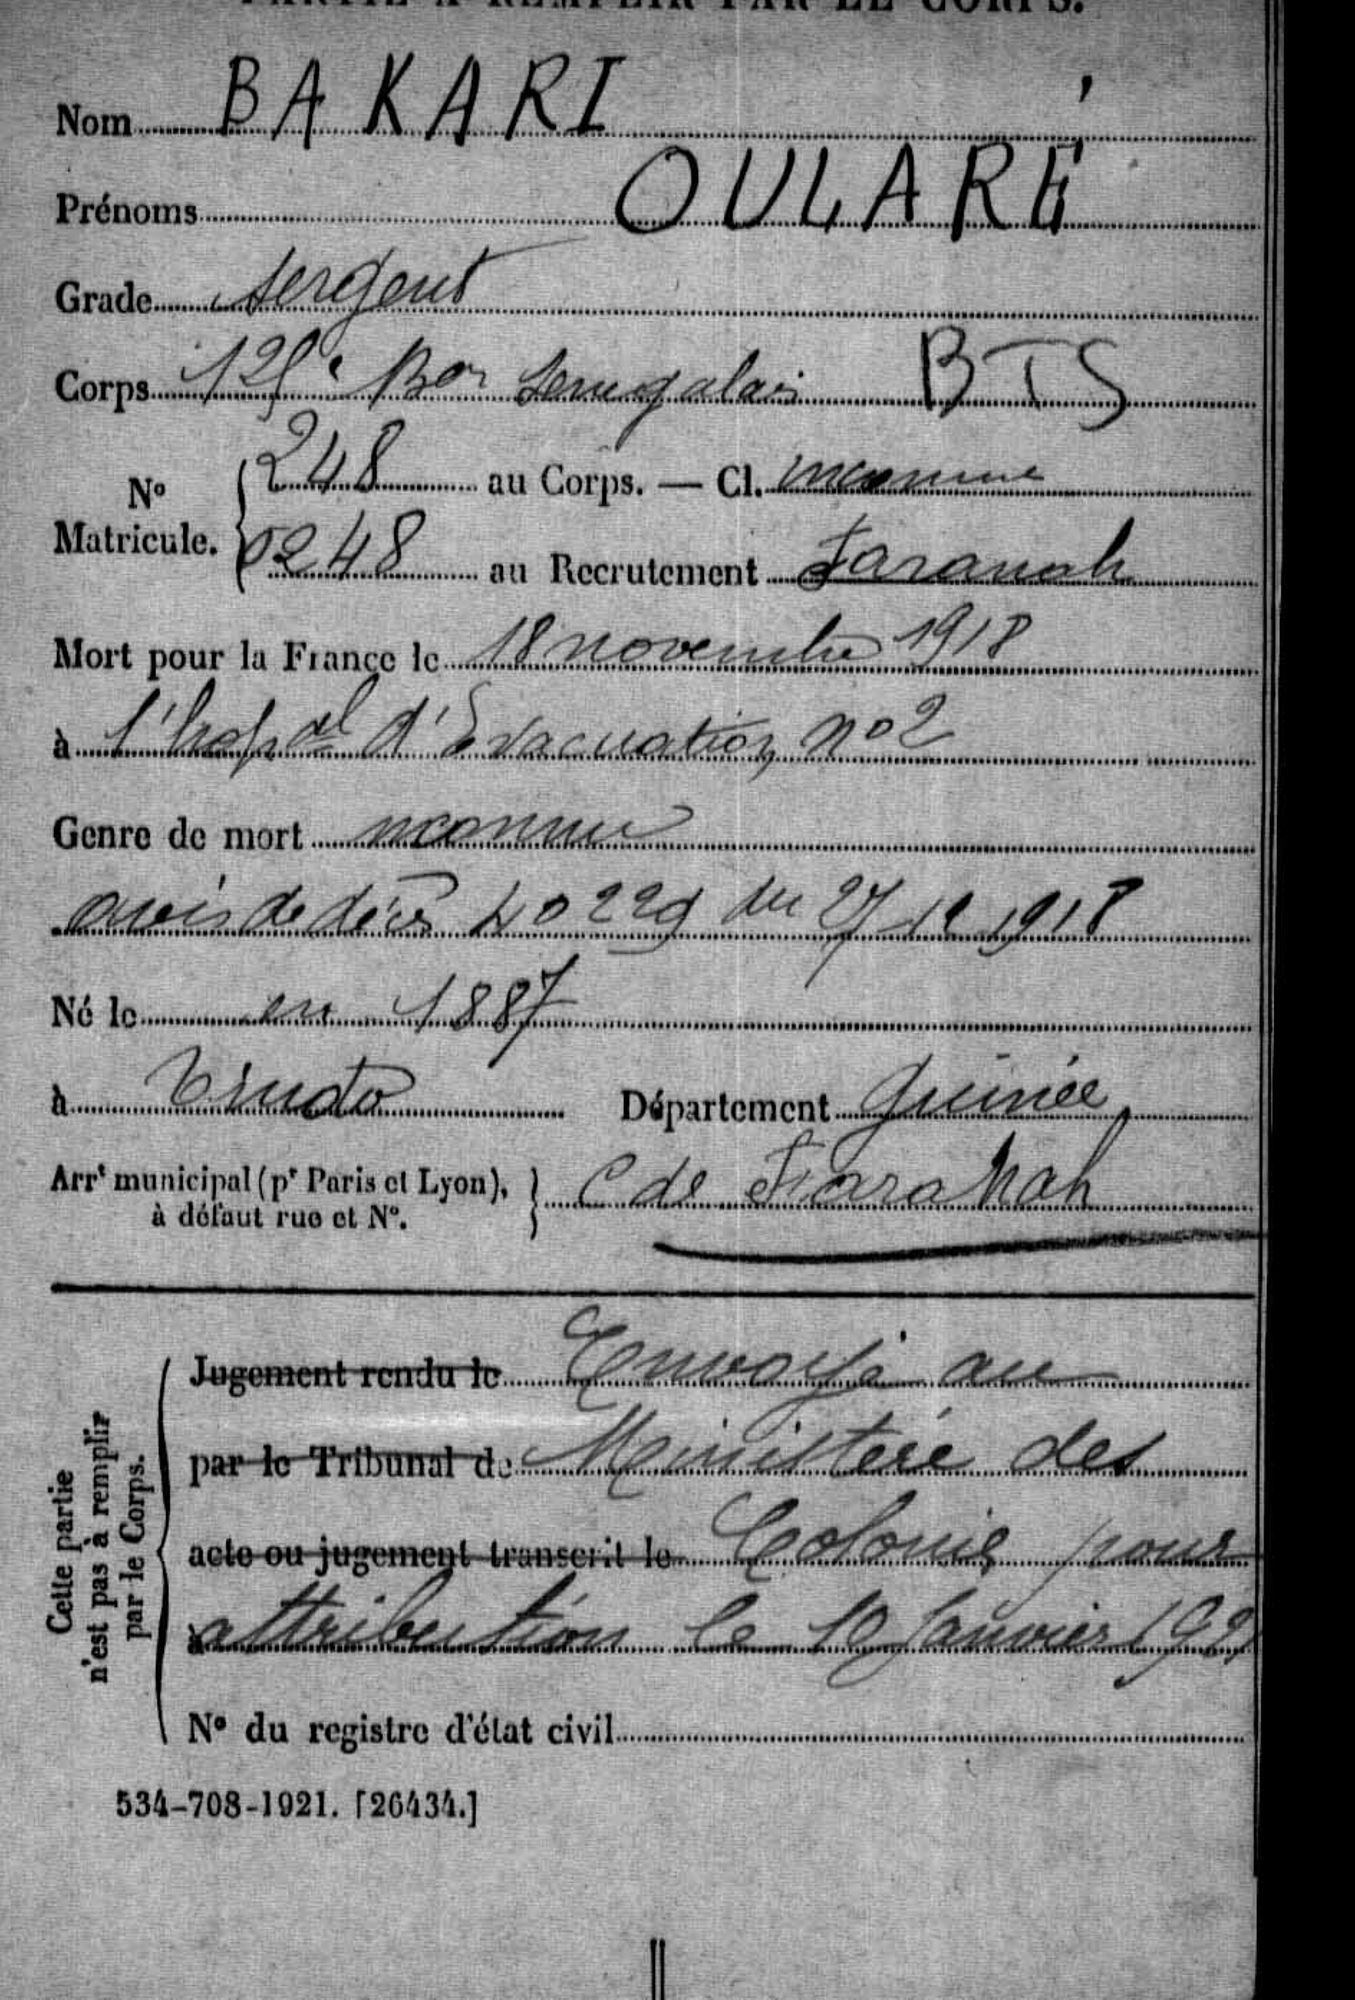 PARTIE A REMPLIR PAR LE CORPS.
Nom BAKARI
Prénoms OULARÉ
Grade Sergent
Corps Bon Senegalais BTS
No Matricule. 248 au Corps. — Cl. inconnue
0248 au Recrutement Faranah
Mort pour la France le 18 novembre 1918
à l'hopal d'Evacuation no 2
Genre de mort inconnu
avis de décès No 229 du 27 1918
Né le en 1887
à Département Guinée
Arrt municipal (pr Paris et Lyon), à défaut rue et No. C de Faranah
Cette partie n'est pas à remplir par le Corps.
Jugement rendu le Envoyé au
par le Tribunal de Ministère des
acte ou jugement transcrit le Colonies pour
à attribution le 10 Janvier
No du registre d'état civil
534-708-1921. [26434.]